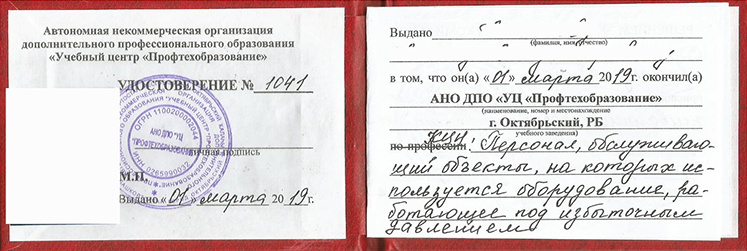 Автономная некоммерческая организация
дополнительного профессионального образования
«Учебный центр «Профтехобразование»
УДОСТОВЕРЕНИЕ № 1041
ОГРН 1100200002044
АНО ДПО "УЦ
"ПРОФТЕХОБРАЗОВАНИЕ"
ИНН 0265990032
личная подпись
М.П.
Выдано «01» марта 2019г.
Выдано
(фамилия, имя, отчество)
в том, что он(а) «01» марта 2019г. окончил(а)
АНО ДПО «УЦ «Профтехобразование»
(наименование, номер и местонахождение
г. Октябрьский, РБ
учебного заведения)
по профессии курс. Персонал, обслуживаю-
щий объекты, на которых ис-
пользуется оборудование, ра-
ботающее под избыточным
давлением